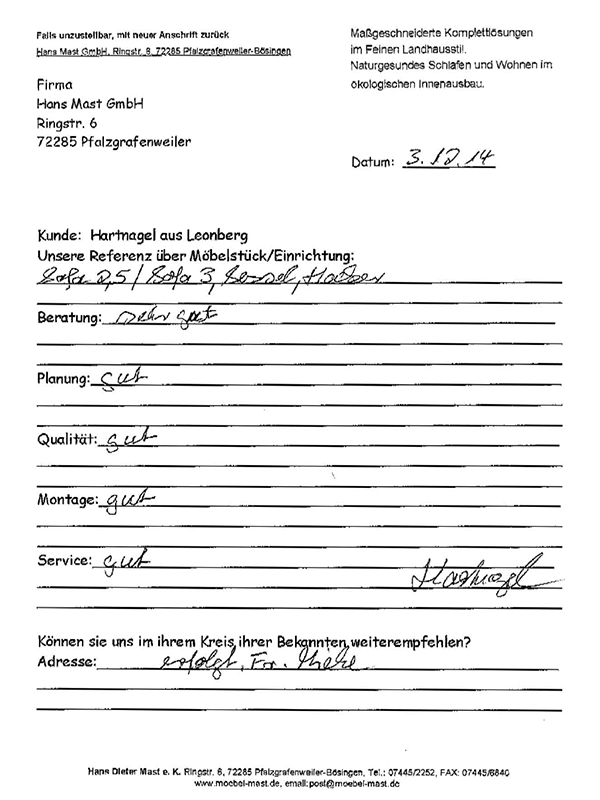 Falls unzustellbar, mit neuer Anschrift zurück
Hans Mast GmbH, Ringstr. 8, 72285 Pfalzgrafenweiler-Bösingen
Maßgeschneiderte Komplettlösungen
im Feinen Landhausstil.
Naturgesundes Schlafen und Wohnen im
ökologischen Innenausbau.
Firma
Hans Mast GmbH
Ringstr. 6
72285 Pfalzgrafenweiler
Datum: 3.12.14
Kunde: Hartnagel aus Leonberg
Unsere Referenz über Möbelstück/Einrichtung:
Sofa 2,5 / Sofa 3, Sessel, Hocker
Beratung: sehr gut
Planung: gut
Qualität: gut
Montage: gut
Service: gut
Hartnagel
Können sie uns im ihrem Kreis, ihrer Bekannten, weiterempfehlen?
Adresse: erfolgt, Fr.
Hans Dieter Mast e. K. Ringstr. 6, 72285 Pfalzgrafenweiler-Bösingen, Tel.: 07445/2252, FAX: 07445/6840
www.moebel-mast.de, email:post@moebel-mast.de